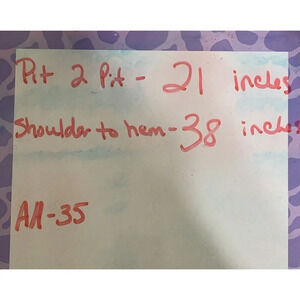 Pit 2 Pit - 21 inches
Shoulder to hem - 38 inches
AA-35